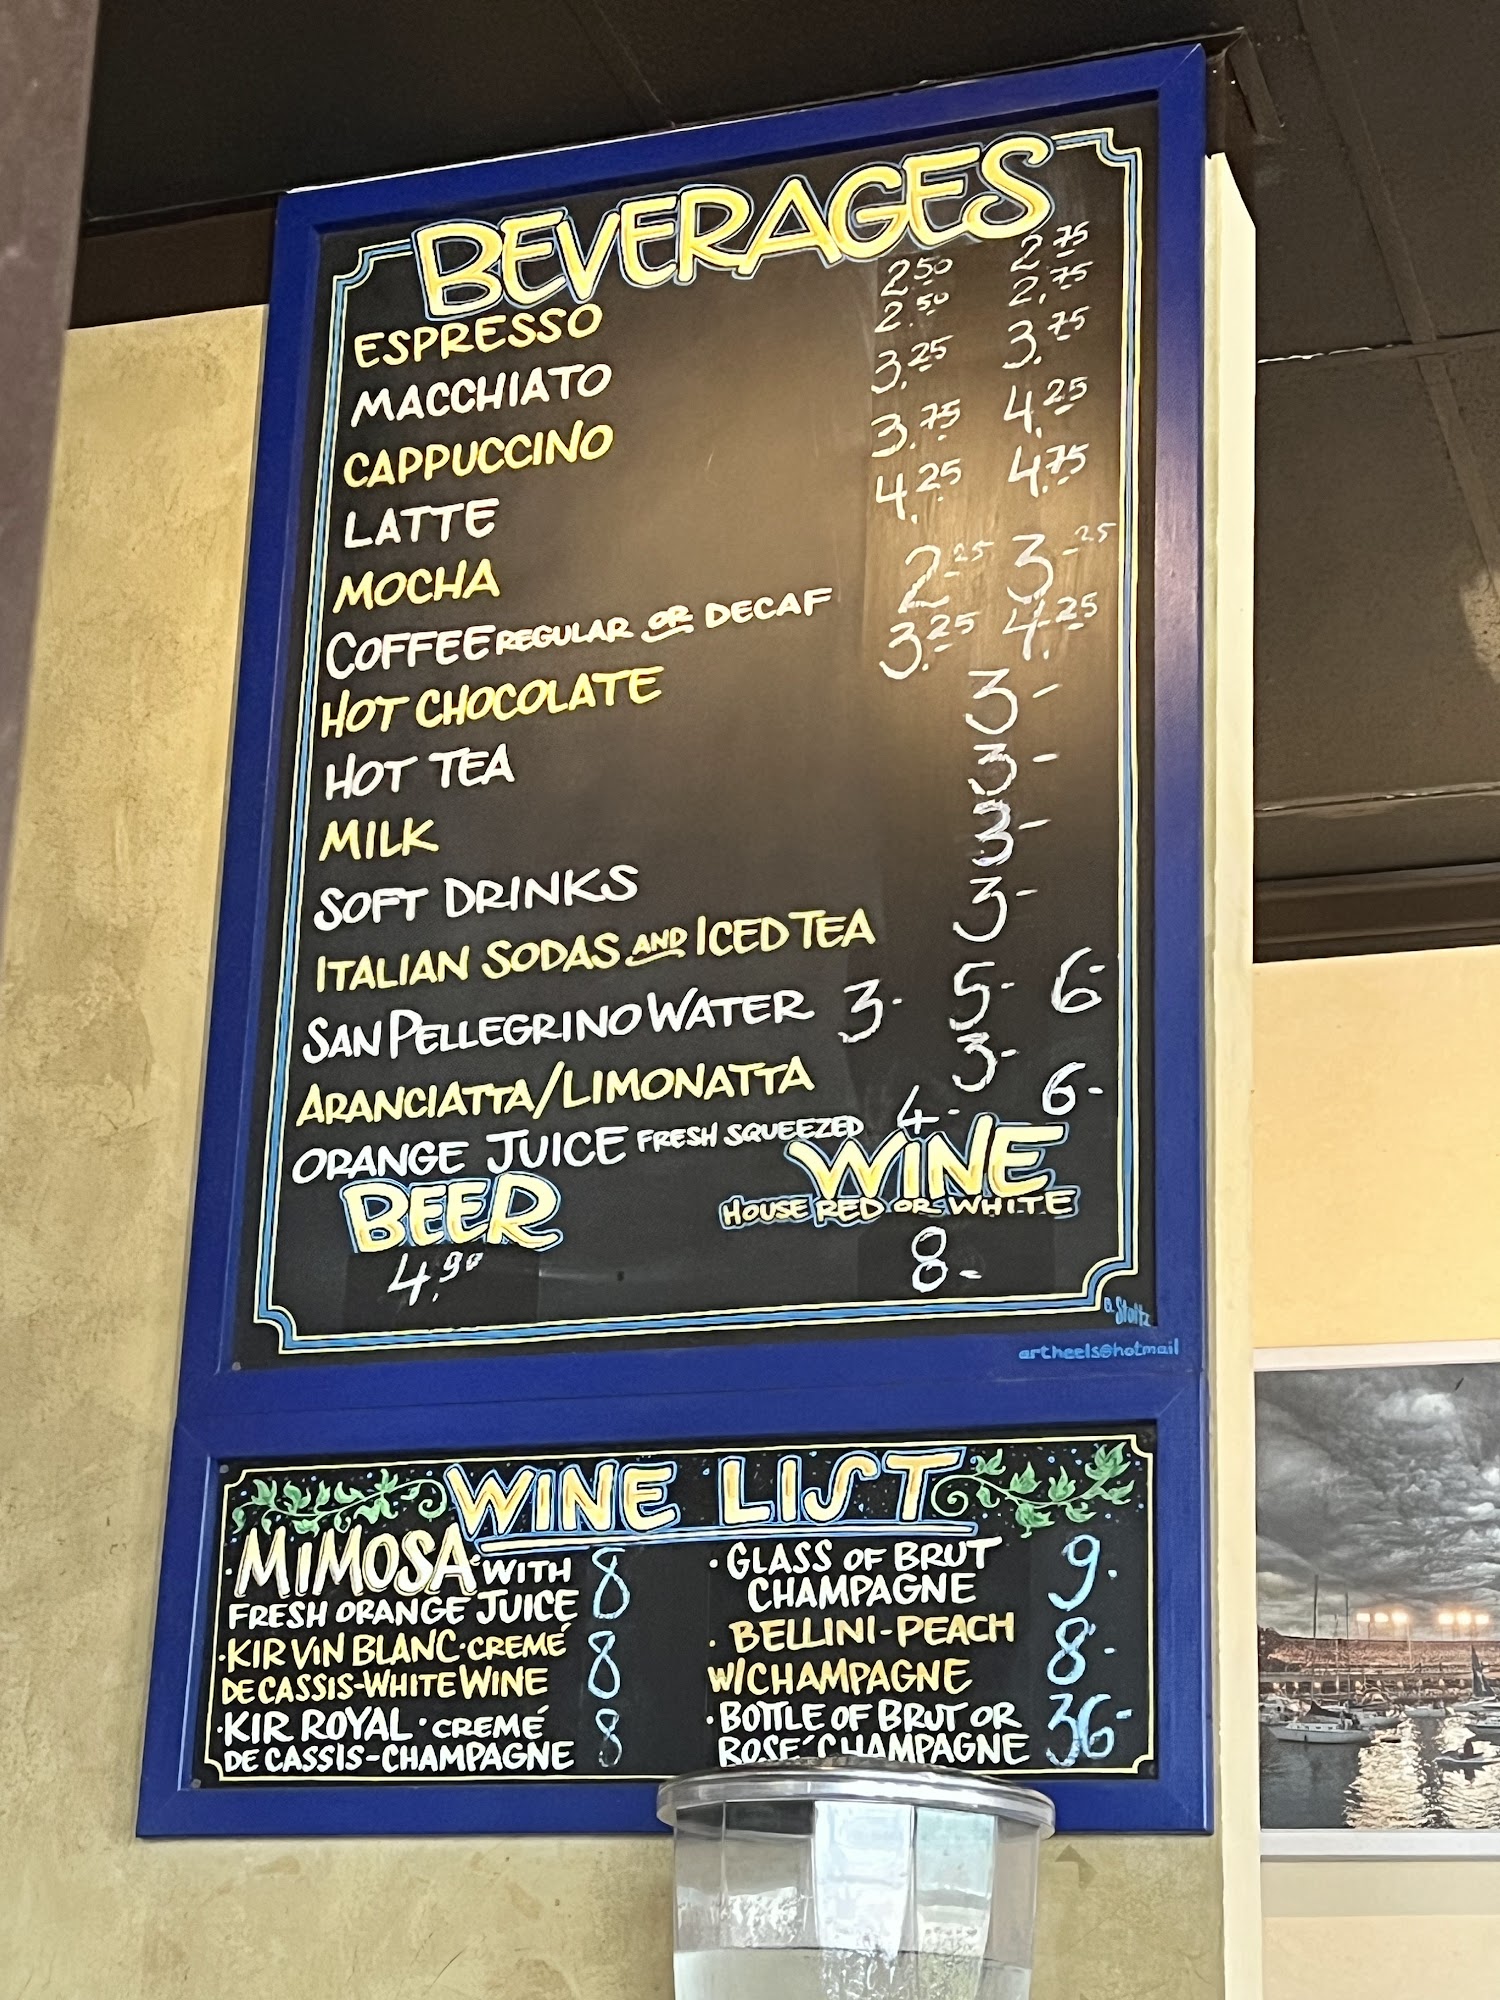 BEVERAGES
ESPRESSO 2.50 2.75
MACCHIATO 2.50 2.75
CAPPUCCINO 3.25 3.75
LATTE 3.75 4.25
MOCHA 4.25 4.75
COFFEE REGULAR OR DECAF 2.25 3.25
HOT CHOCOLATE 3.25 4.25
HOT TEA 3-
MILK 3-
SOFT DRINKS 3-
ITALIAN SODAS AND ICED TEA 3-
SAN PELLEGRINO WATER 3- 5- 6-
ARANCIATTA/LIMONATTA 3-
ORANGE JUICE FRESH SQUEEZED 4- 6-
BEER
4.90
WINE
HOUSE RED OR WHITE
8-
artheels@hotmail
WINE LIST
·MIMOSA WITH 8
FRESH ORANGE JUICE
·KIR VIN BLANC·CREMÉ 8
DE CASSIS-WHITE WINE
·KIR ROYAL·CREMÉ 8
DE CASSIS-CHAMPAGNE
·GLASS OF BRUT 9.
CHAMPAGNE
·BELLINI-PEACH 8-
W/CHAMPAGNE
·BOTTLE OF BRUT OR 36-
ROSE´ CHAMPAGNE